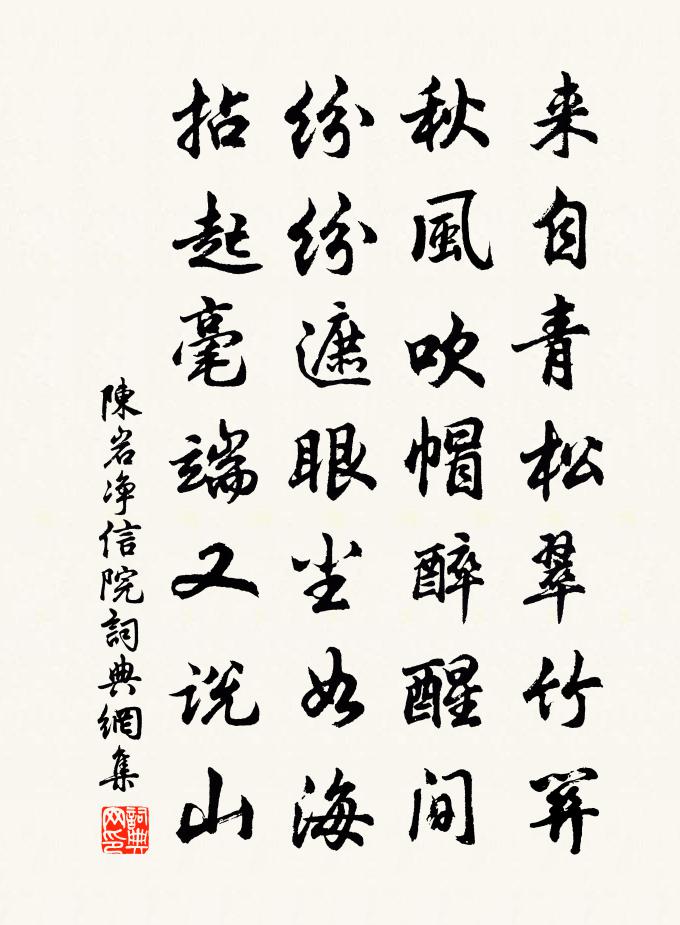 来自青松翠竹關
秋風吹帽醉醒间
紛紛遮眼尘如海
拈起毫端又説山
陳岩净信院詞典網集
詞典网印